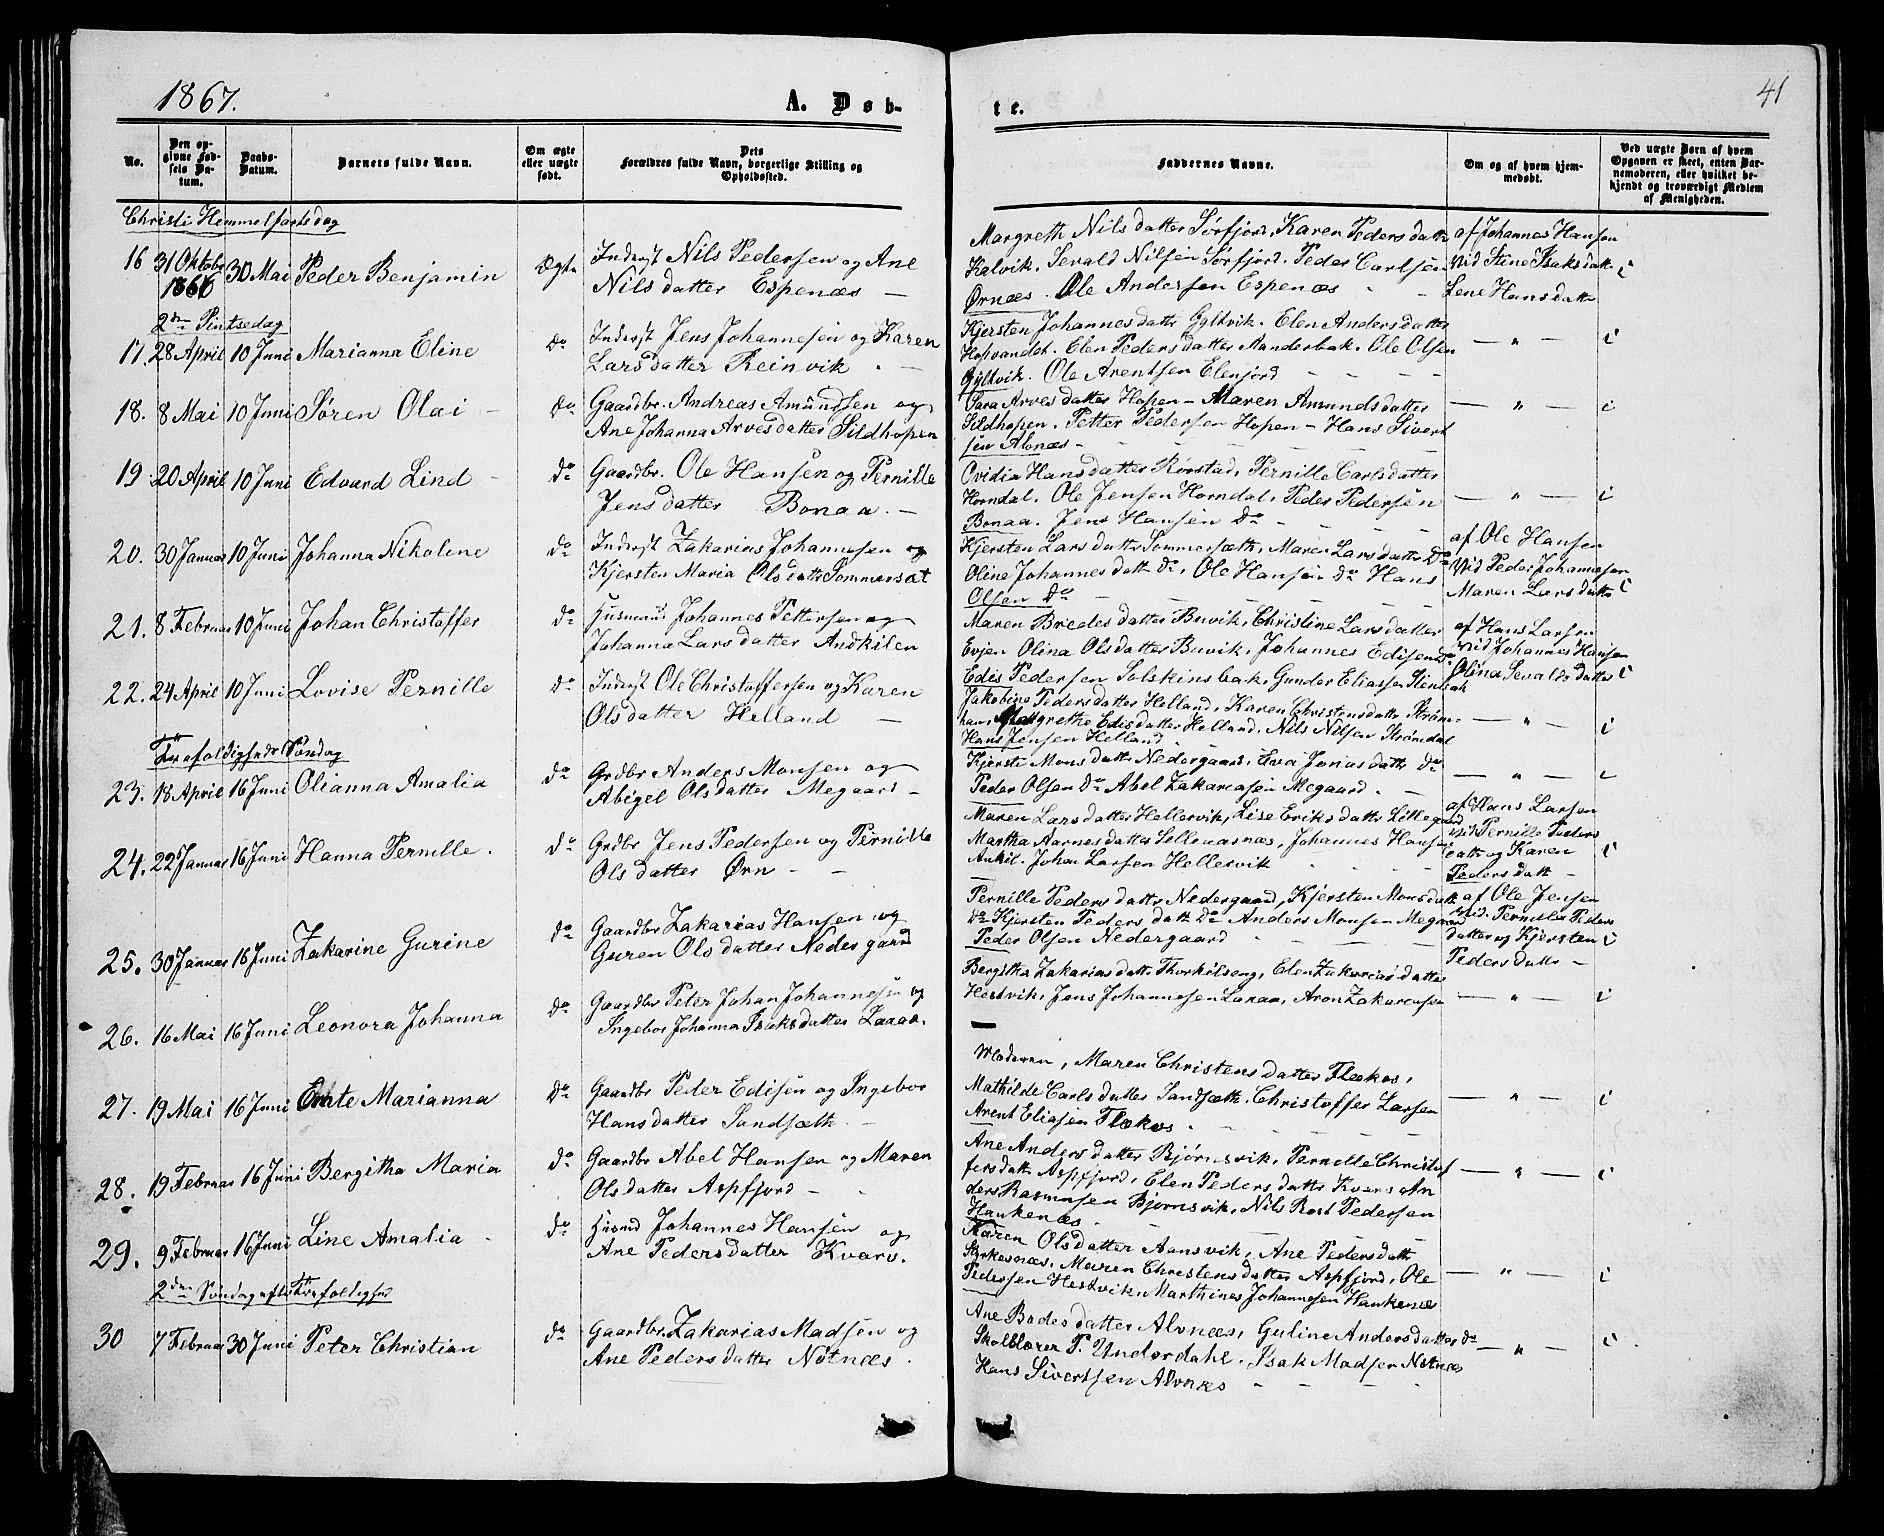 1867.
A. Døb-
te.
41
No.
Den op-
givne Fød-
sels Da-
tum.
Daabs-
Datum.
Barnets fulde Navn.
Om ægte
eller uægte
født.
Dets
Forældres fulde Navn, borgerlige Stilling og
Opholdssted.
Faddernes Navne.
Om og af hvem hjem-
medøbt.
Ved uægte Børn af hvem
Opgaven er skeet, enten Bar-
nemoderen, eller hvilket be-
kjendt og troværdigt Medlem
af Menigheden.
Christi Hemmelfartsdag
16 31 Oktobr 30 Mai Peder Benjamin Ægte
1866
Inderst Nils Pedersen og Ane
Nilsdatter Espenæs —
Margreth Nilsdatter Sørfjord, Karen Pedersdatt
Kalvik. Sevald Nilsen Sørfjord. Peder Carlsen
Ørnæs. Ole Andersen Espenæs
af Johannes Hansen
Vid Stine Isaksdatt
Lene Hansdatter
2den Pintsedag
17. 28 April 10 Juni Marianna Eline do
Inderst Jens Johannesen og Karen
Larsdatter Reinvik
Kjersten Johannesdatter Gyltvik. Elen Andersdatter
Hopvandet. Elen Pedersdatter Aanderbak. Ole Olsen
Gyltvik. Ole Arentsen Elenjord
— " —
18. 8 Mai 10 Juni Søren Olai do
Gaardbr. Andreas Amundsen og
Ane Johanna Arvesdatter Sildhopen
Sara Arvesdatter Hopen – Maren Amundsdatter
Sildhopen. Petter Pedersen Hopen – Hans Sivert
sen Alvnæs —
— " —
19 20 April 10 Juni Edvard Lind do
Gaardbr. Ole Hansen og Pernille
Jensdatter Bonaa. —
Ovidia Hansdatter Rørstad, Pernille Carlsdatter
Horndal. Ole Jensen Horndal. Peder Pedersen
Bonaa. Jens Hansen do
— " —
20. 30 Januar 10 Juni Johanna Nikolene do
Inderst Zakarias Johannesen og
Kjersten Maria Olsdatter Sommersæt
Kjersten Larsdatter Sommersæth, Maren Larsdatter Do
Oline Johannesdatt do, Ole Hansen do Hans
Olsen Do
af Ole Hansen
Vid Peder Johannesen
Maren Larsdatter
21. 8 Februar 10 Juni Johan Christoffer do
Husmand Johannes Pettersen og
Johanna Larsdatter Andkilen
Maren Bredesdatter Buvik, Christine Larsdatter
Evjen Olina Olsdatter Buvik, Johannes Edisen do
Edis Pedersen Solskinsbak, Gunder Eliassen Stenbak
af Hans Larsen
Vid Johannes Hansen
Olina Sevaldsdatter
22. 24 April 10 Juni Lovise Pernille do
Inderst Ole Christoffersen og Karen
Olsdatter Helland —
Jakobine Pedersdatter Helland, Karen Christensdatter Strøm-
Margrethe Edisdatter Helland. Nils Nilsen Strømdal
Hans Jensen Helland
— " —
Trefoldigheds Søndag
23. 18 April 16 Juni Olianna Amalia do
Grdbr Anders Monsen og
Abigel Olsdatter Megaard —
Kjersti Monsdatter Nedergaard, Eva Jonasdatter do
Peder Olsen Do Abel Zakariasen Megaard. —
— " —
24. 22 Januar 16 Juni Hanna Pernille. do
Grdbr Jens Pedersen og Pernille
Olsdatter Ørn —
Maren Larsdatter Hellervik, Lise Eriksdatter Lillegaard
Martha Aarnesdatter, Johannes Hansen
Ankil. Johan Larsen Hellesvik
af Hans Larsen
vid Pernille Peders
datt og Karen
Pedersdatt —
25. 30 Januar 16 Juni Zakarine Gurine do
Gaardbr Zakarias Hansen og
Guren Olsdatter Nedergaard
Pernille Pedersdatter Nedergaard, Kjersten Monsdatt
do Kjersten Pedersdatt do Anders Monsen Megaard
Peder Olsen Nedergaard
af Ole Jensen
vid. Pernille Peders
datter og Kjersten
Pedersdatter —
26. 16 Mai 16 Juni Leonora Johanna do
Gaardbr Peter Johan Johannesen og
Ingebor Johanna Isaksdatter Laxaa.
Bergitha Zakariasdatter Thorkilseng, Elen Zakariasdatter
Hestvik, Jens Johannesen Laxaa, Aron Zakariasen
— " —
27. 19 Mai 16 Juni Marianna do
Gaardbr Peder Edisen og Ingebor
Hansdatter Sandsæth —
Moderen, Maren Christensdatter Flekos,
Mathilde Carlsdatter Sandsæth. Christoffer Larsen
Arent Eliasen Flekos.
— " —
28. 19 Februar 16 Juni Bergitha Maria do
Gaardbr Abel Hansen og Maren
Olsdatter Aspfjord —
Ane Andersdatter Bjørnsvik, Pernille Christof
fersdatt Aspfjord, Elen Pedersdatter Kvarv An
ders Rasmussen Bjørnsvik, Nils Rost Pedersen
Haukenæs.
— " —
29. 9 Februar 16 Juni Line Amalia do
Husmd Johannes Hansen og
Ane Pedersdatter Kvarv.
Karen Olsdatter Aansvik, Ane Pedersdatt
Styrkesnæs, Maren Christensdatter Aspfjord, Ole
Pedersen Hestvik, Marthines Johannesen Haukenæs
— " —
2den Søndag efter Trefoldighed
30 7 Februar 30 Juni Peter Christian do
Gaardbr. Zakarias Madsen og
Ane Pedersdatter Nótnæs.
Ane Bodesdatter Alvnæs, Guline Andersdatter do
Skolelærer P. Underdahl. Isak Madsen Nótnæs
Hans Sivertsen Alvnæs
— " —